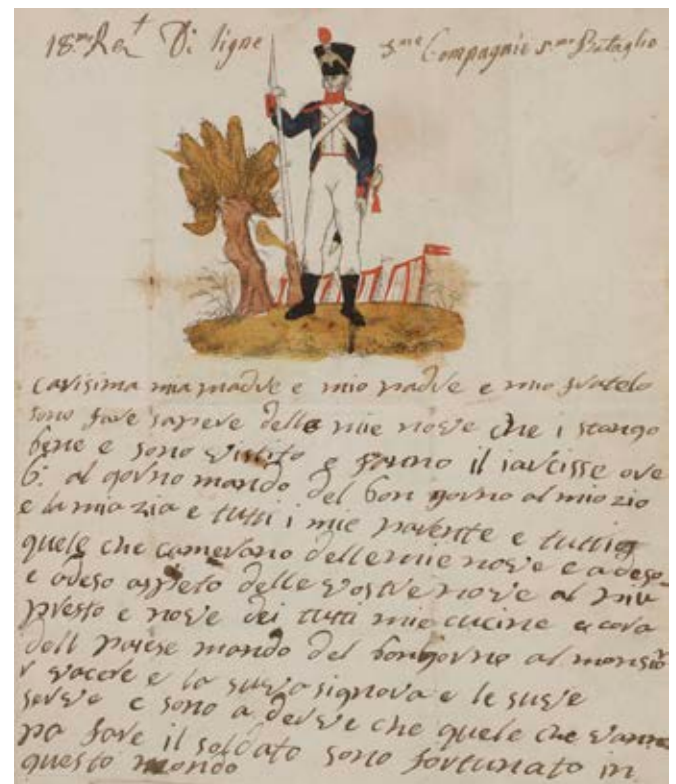 18.me Re.t Di ligne 3me Compagnie 5me Bataglio
carisima mia madre e mio padre e mio fratelo
sono fare sapere delle mie nove che i stango
bene e sono vistito e fanno il iarcisse ove
6: al gorno mando del bon gorno al mio zio
e la mia zia e tutti i mie parente e tutti
quele che camerano delle mie nove e adeso
e adeso aspeto delle vostre nove al piu
presto e nove dei tutti mie cucine ecora
dell paiese mando del bongorno al monsior
e la sueva signora e le sueve
e sono a derve che quele che vanno
pa fare il soldato sono fortunato in
questo mondo